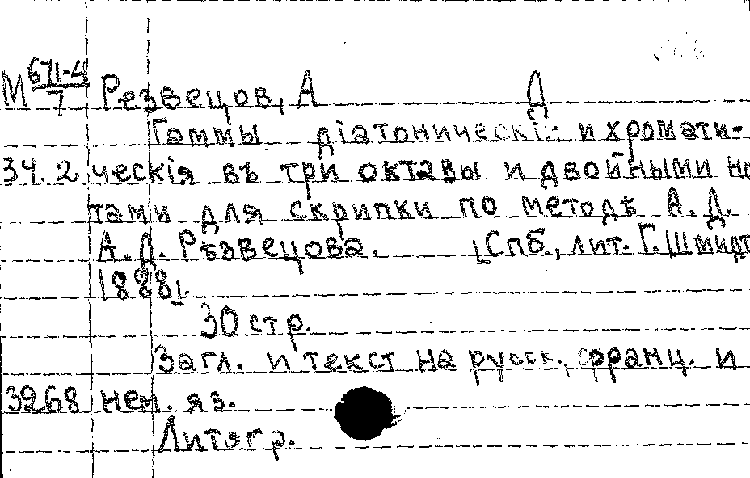 М 671-4/7 Резвецов, А Д
Гаммы діатоническія и хромати-
34.2 ческія въ три октавы и двойными но
тами для скрипки по методѣ А. Д.
А. Д. Рѣзвецова. [Спб., лит. Г. Шмидт
1888].
30 стр.
Загл. и текст на русск., франц. и
3268 нем. яз.
Литогр.